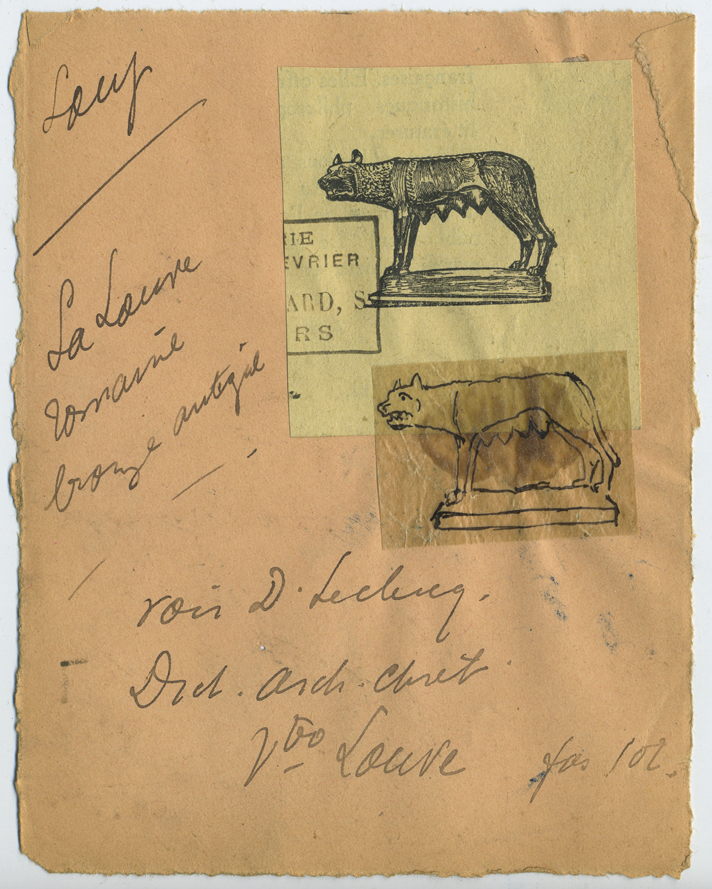 Loup
françaises,
IE
EVRIER
ARD, S
RS
La Louve
romaine
bronze antique
voir D. Leclercq.
Dict. arch. chret.
Vbo Louve fas 102.